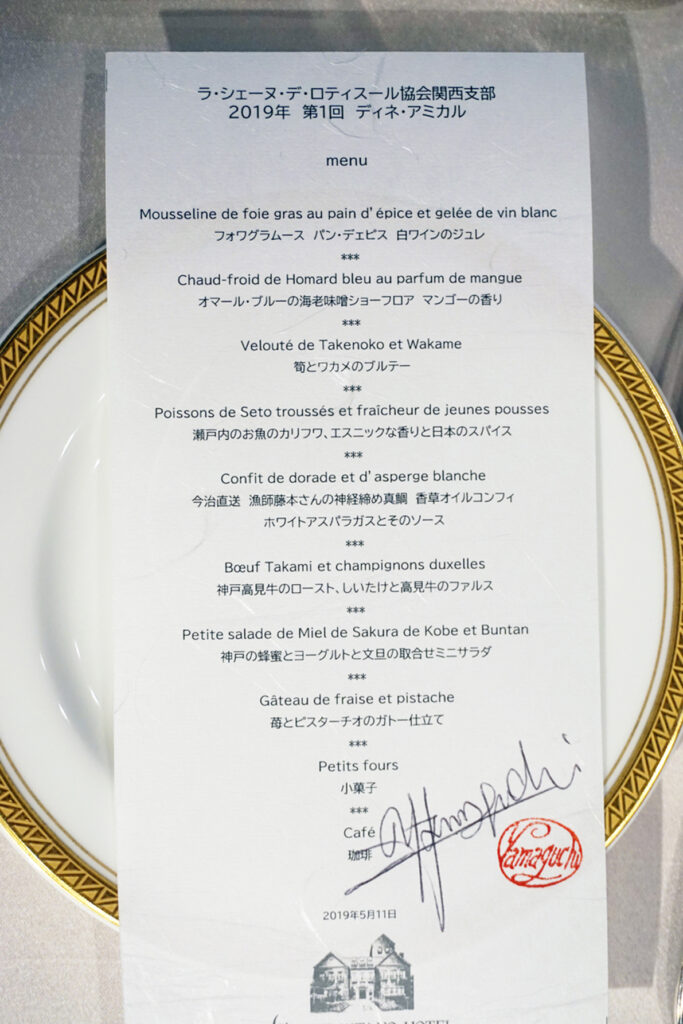 ラ・シェーヌ・デ・ロティスール協会関西支部
2019年 第1回 ディネ・アミカル
menu
Mousseline de foie gras au pain d'épice et gelée de vin blanc
フォワグラムース パン・デェピス 白ワインのジュレ
***
Chaud-froid de Homard bleu au parfum de mangue
オマール・ブルーの海老味噌ショーフロア マンゴーの香り
***
Velouté de Takenoko et Wakame
筍とワカメのブルテー
***
Poissons de Seto troussés et fraîcheur de jeunes pousses
瀬戸内のお魚のカリフワ、エスニックな香りと日本のスパイス
***
Confit de dorade et d'asperge blanche
今治直送 漁師藤本さんの神経締め真鯛 香草オイルコンフィ
ホワイトアスパラガスとそのソース
***
Bœuf Takami et champignons duxelles
神戸高見牛のロースト、しいたけと高見牛のファルス
***
Petite salade de Miel de Sakura de Kobe et Buntan
神戸の蜂蜜とヨーグルトと文旦の取合せミニサラダ
***
Gâteau de fraise et pistache
苺とピスターチオのガトー仕立て
***
Petits fours
小菓子
***
Café
珈琲
Yamaguchi
2019年5月11日
HOTEL